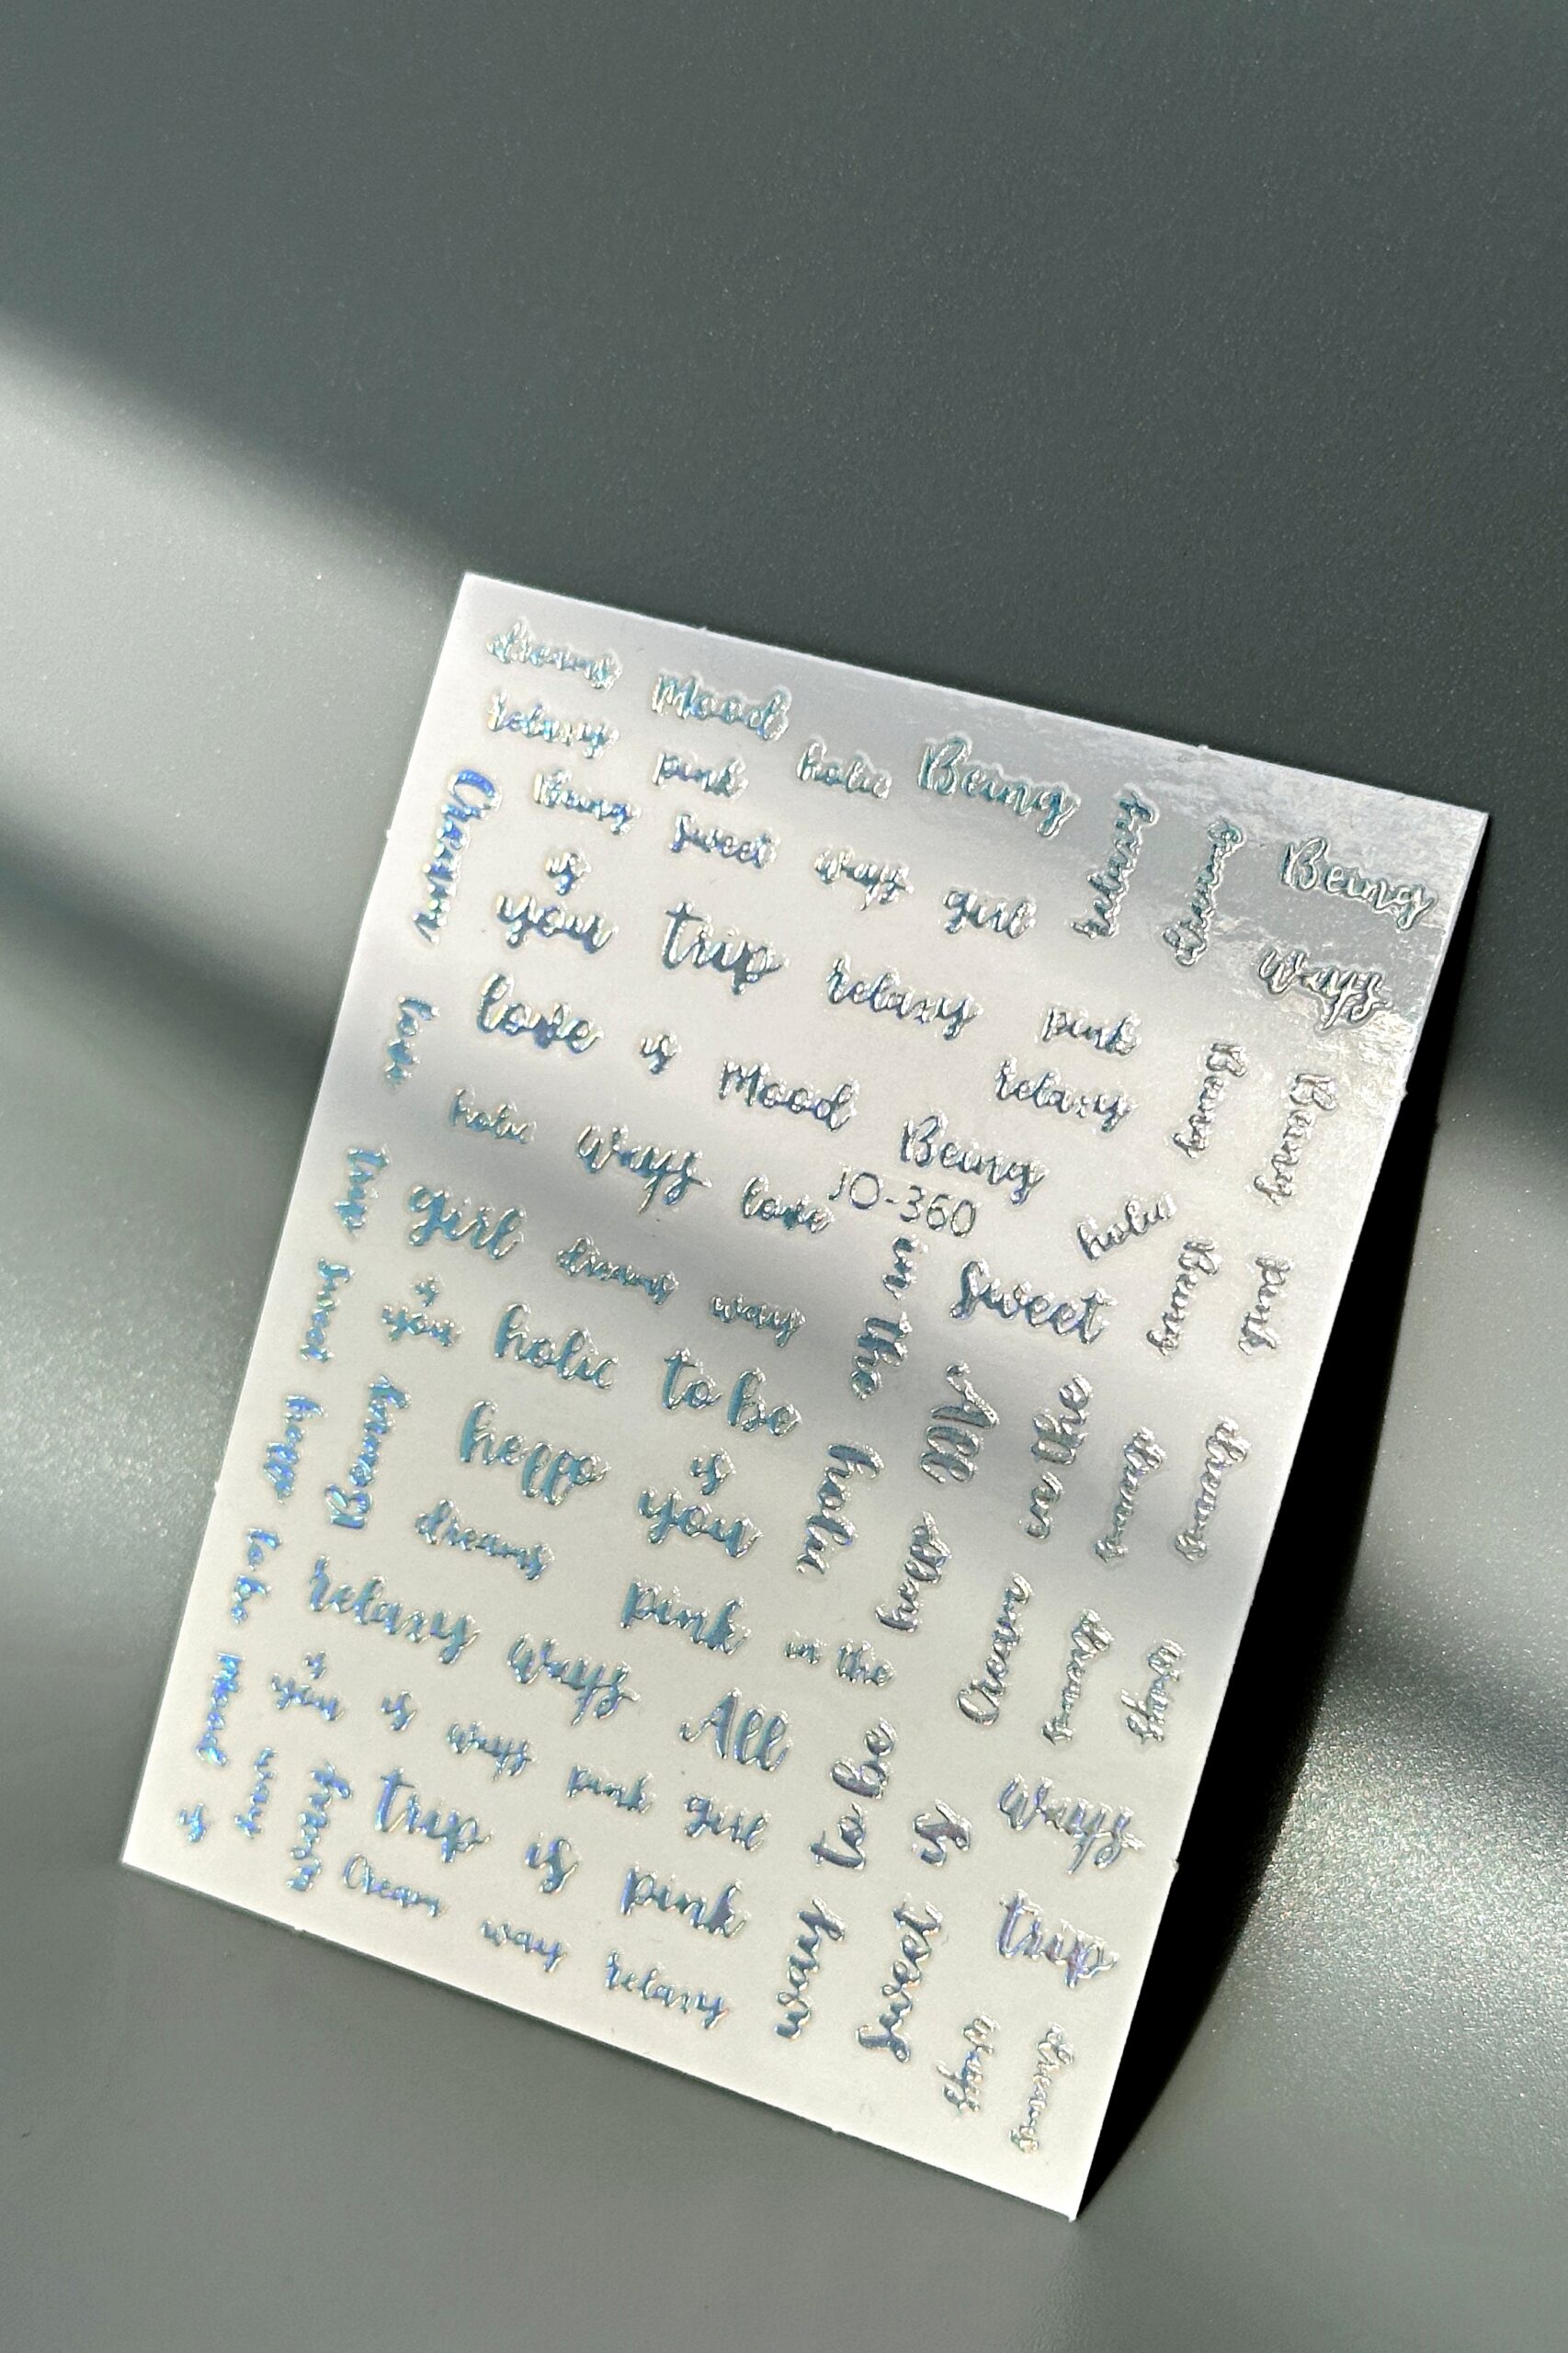 dreams Mood
relaxy pink holic Being relaxy dreams Being
Cream Being sweet ways girl ways
is
you trip relaxy pink
love love is Mood relaxy Being Being
holic ways love Being holic
JO-360
trip girl dreams way in the sweet Being pink
sweet is
you holic to be All in the dreams dreams
hello hello is
you holic hello
dreams pink in the Cream ways
to be relaxy ways All to be ways
Mood is
you is ways pink girl is
is way trip is pink way sweet trip
Cream way relaxy ways dreams